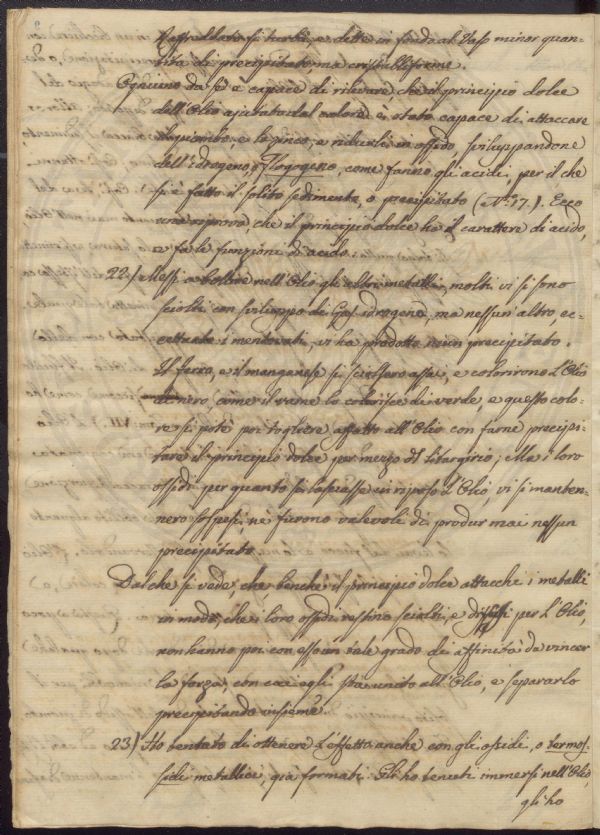 Raffreddato si turbò, e dette in fondo al Vaso minor quan-
tità di precipitato, ma cristalliforme.
Ognuno da se è capace di rilevare, che il principio dolce
dell'Olio ajutato dal calore è stato capace di attaccare
il piombo, e lo zinco, e ridurli in ossido, sviluppandone
dell'idrogeno, o Flogogeno, come fanno gli acidi, per il che
si è fatto il solito sedimento, o precipitato (N.º 17.). Ecco
una riprova, che il principio dolce ha il carattere di acido,
e fa le funzioni di acido.
22.) Messi a bollire nell'Olio gli altri metalli, molti vi si sono
sciolti con sviluppo di Gas idrogeno, ma nessun'altro, ec-
cettuati i mentovati, vi ha prodotto niun precipitato.
Il ferro, e il manganese si sciolsero assai, e colorirono l'Olio
di nero, come il rame lo colorisce di verde, e questo colo-
re si potè poi togliere affatto all'Olio con farne precipi-
tare il principio dolce per mezzo del litargirio; Ma i loro
ossidi per quanto si lasciasse in riposo l'Olio, vi si manten-
nero sospesi, nè furono valevoli di produr mai nessun
precipitato.
Dal che si vede, che benchè il principio dolce attacchi i metalli
in modo, che i loro ossidi restino sciolti, e diffusi per l'Olio,
non hanno poi con esso un tale grado di affinità da vincer
la forza, con cui egli sta unito all'Olio, e separarlo
precipitando insieme.
23.) Ho tentato di ottenere l'effetto anche con gli ossidi, o termos-
sidi metallici, già formati. Gli ho tenuti immersi nell'Olio,
gli ho